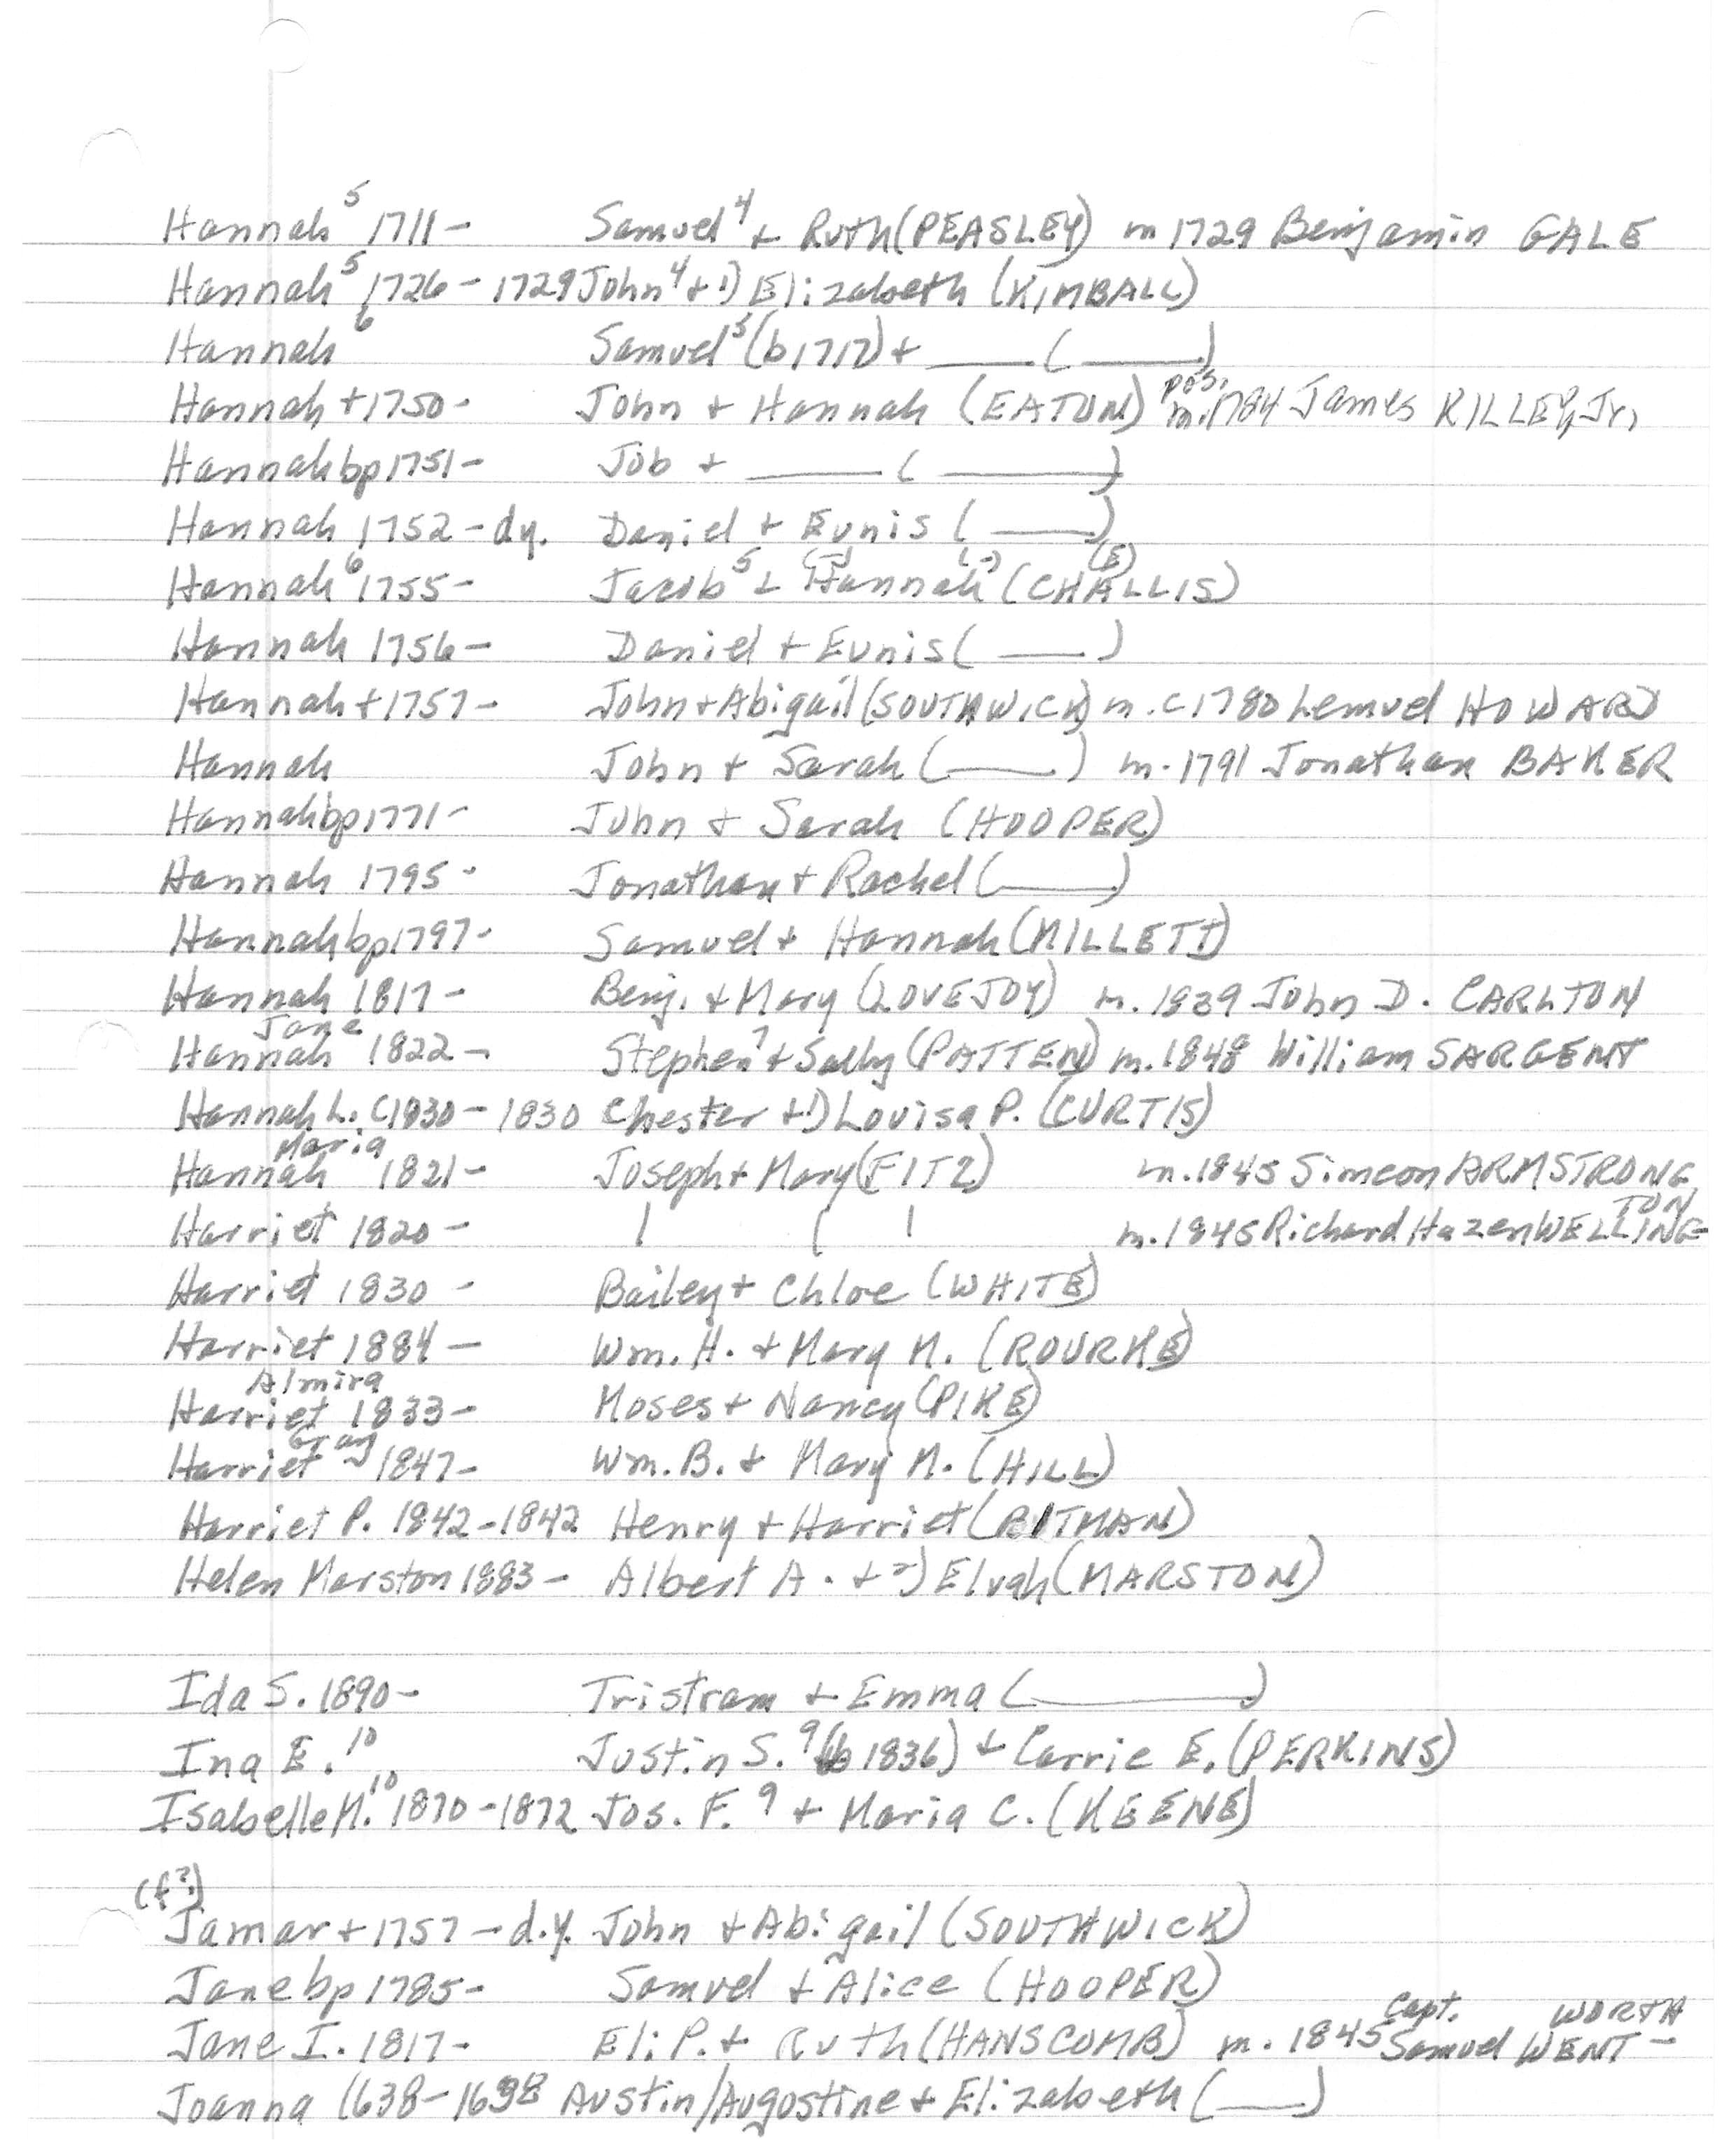 Hannah⁵ 1711- Samuel⁴ + Ruth (PEASLEY) m 1729 Benjamin GALE
Hannah⁵ 1726-1729 John⁴ + 1) Elizabeth (KIMBALL)
Hannah⁶ Samuel⁵ (b1717) + ____ ( ____ )
Hannah +1750- John + Hannah (EATON) pos. m. 1784 James KILLEY, Jr.
Hannah bp1751- Job + ____ ( ____ )
Hannah 1752-dy. Daniel + Eunis ( ____ )
Hannah⁶ 1755- Jacob⁵ + (-) Hannah (-) (CHALLIS) (E)
Hannah 1756- Daniel + Eunis ( ____ )
Hannah +1757- John + Abigail (SOUTHWICK) m. c1780 Lemuel HOWARD
Hannah John + Sarah ( ____ ) m. 1791 Jonathan BAKER
Hannah bp1771- John + Sarah (HOOPER)
Hannah 1795- Jonathan + Rachel ( ____ )
Hannah bp1797- Samuel + Hannah (MILLETT)
Hannah 1817- Benj. + Mary (LOVEJOY) m. 1839 John D. CARLTON
Hannah Jane 1822- Stephen⁷ + Sally (PATTEN) m. 1848 William SARGENT
Hannah L. c1830-1830 Chester + 1) Louisa P. (CURTIS)
Hannah Maria 1821- Joseph + Mary (FITZ) m. 1845 Simeon ARMSTRONG
Harriet 1820- | ( | m. 1845 Richard Hazen WELLINGTON
Harriet 1830- Bailey + Chloe (WHITE)
Harriet 1884- Wm. H. + Mary M. (ROURKE)
Harriet Almira 1833- Moses + Nancy (PIKE)
Harriet Gray 1847- Wm. B. + Mary M. (HILL)
Harriet P. 1842-1842 Henry + Harriet (PITMAN)
Helen Marston 1883- Albert A. + 2) Elvah (MARSTON)
Ida S. 1890- Tristram + Emma ( ____ )
Ina E.¹⁰ Justin S.⁹ (b 1836) + Carrie E. (PERKINS)
Isabelle M.¹⁰ 1870-1872 Jos. F.⁹ + Maria C. (KEENE)
(f?)
Jamar +1757-d.y. John + Abigail (SOUTHWICK)
Jane bp 1785- Samuel + Alice (HOOPER)
Jane I. 1817- Eli P. + Ruth (HANSCOMB) m. 1845 Capt. Samuel WENTWORTH
Joanna 1638-1698 Austin/Augostine + Elizabeth ( ____ )